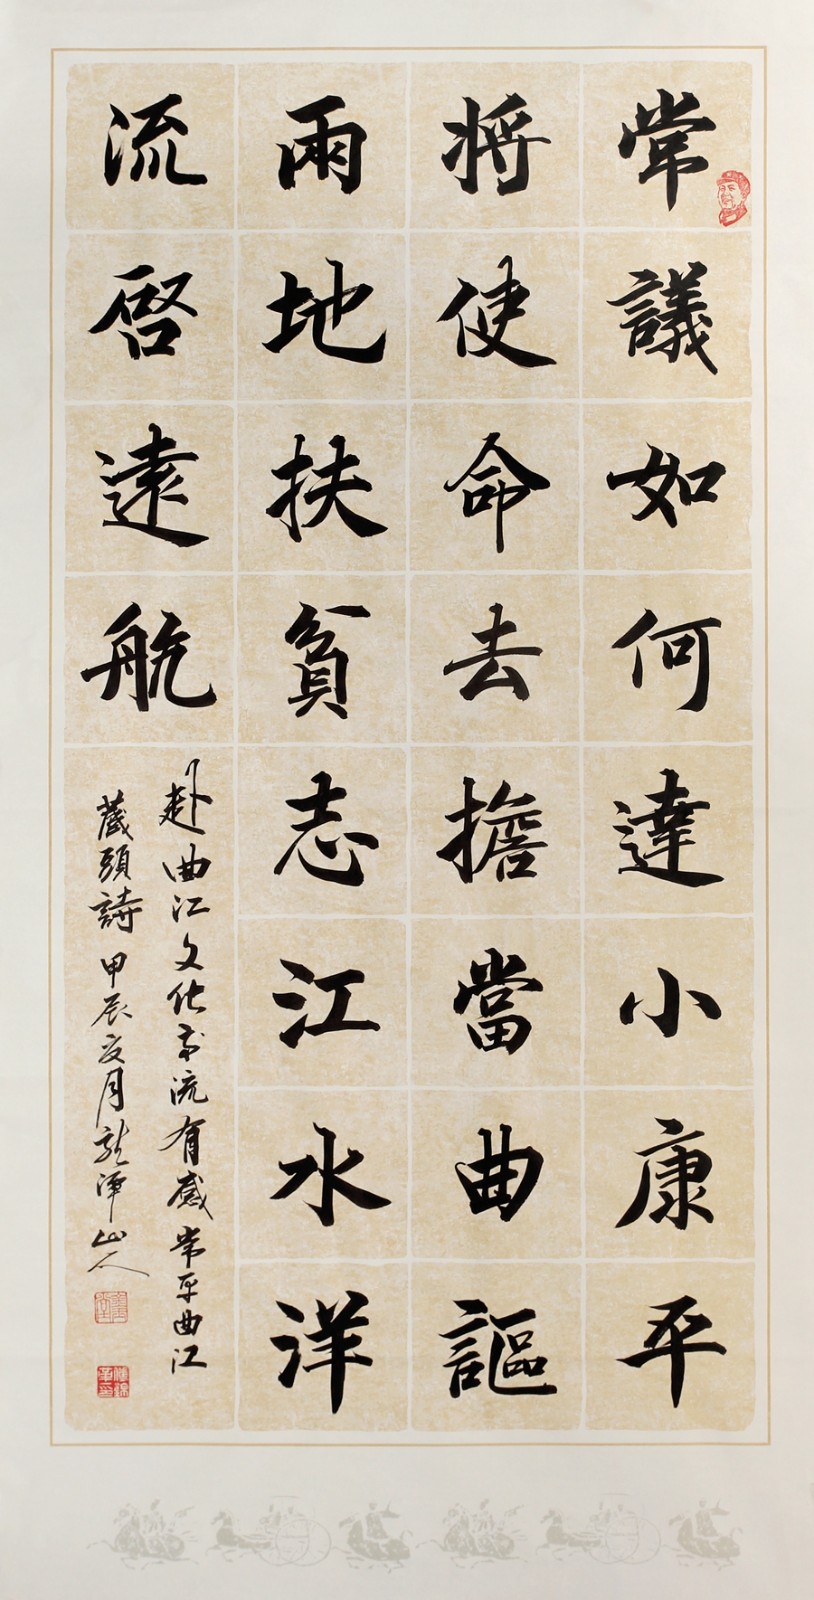 常議如何達小康平
將使命去擔當曲謳
兩地扶貧志江水洋
流啓遠航
赴曲江文化交流有感常平曲江
藏頭詩甲辰夏月龍澤山人